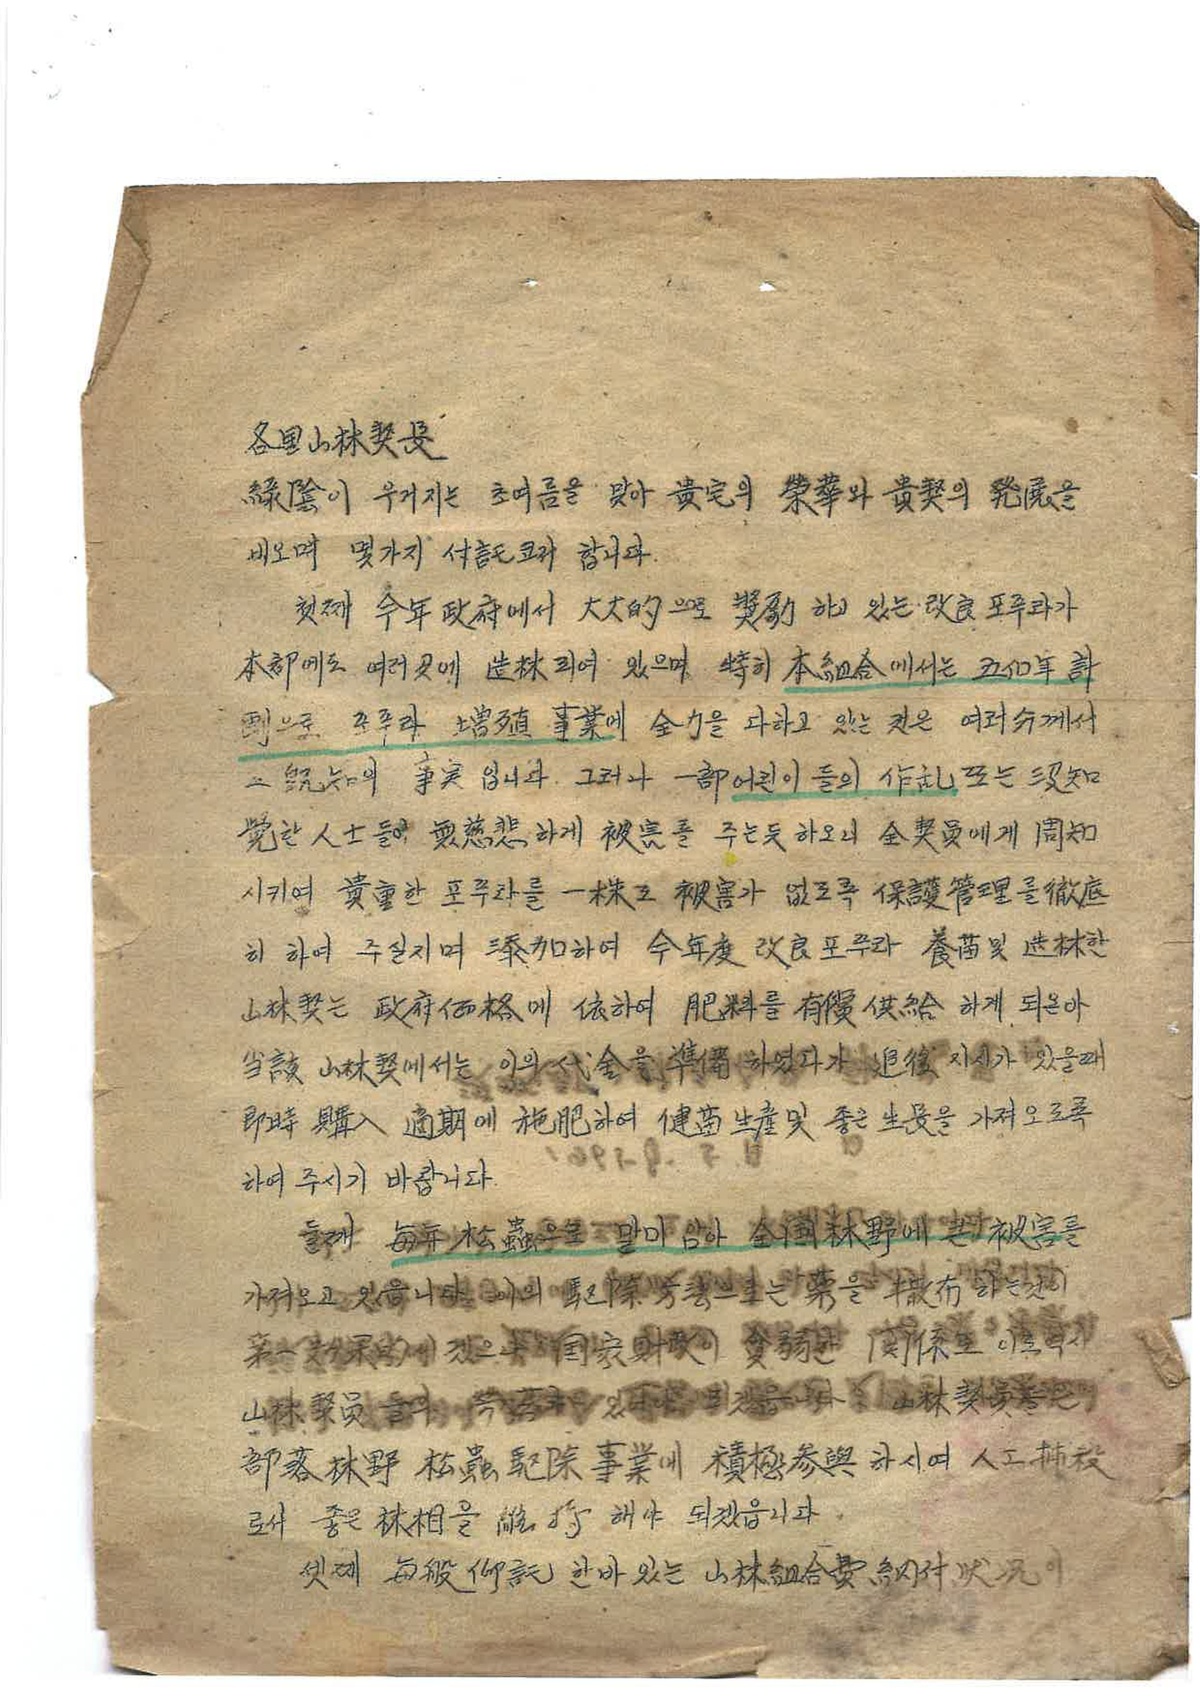 各里山林契長
綠陰이 우거지는 초여름을 맞아 貴宅의 榮華와 貴契의 発展을
비오며 몇가지 付託코저 합니다.
첫째 今年 政府에서 大大的으로 奬勵 하고 있는 改良 포푸라가
本郡에도 여러곳에 造林되여 있으며 特히 本組合에서는 五個年 計
劃으로 포푸라 增殖 事業에 全力을 다하고 있는 것은 여러分께서
旣知의 事実 입니다 그러나 一部 어린이 들의 作乱 또는 沒知
覺한 人士들이 無慈悲하게 被害를 주는듯 하오니 全契員에게 周知
시키여 貴重한 포푸라를 一株도 被害가 없도록 保護管理를 徹底
히 하여 주실지며 添加하여 今年度 改良포푸라 養苗및 造林한
山林契는 政府価格에 依하여 肥料를 有償供給 하게 되온아
当該 山林契에서는 이의 代金을 準備 하였다가 追後 지시가 있을때
即時 購入 適期에 施肥하여 健苗生産및 좋은 生長을 가져오도록
하여 주시기 바랍니다.
둘째 每年 松蟲으로 말미암아 全國林野에 큰 被害를
가져오고 있읍니다 이의 駆除方法으로는 薬을 撒布 하는것이
第一 効果的 國家財政이 貧弱한 関係로
山林契員 들의 山林契員
部落林野 松蟲駆除事業에 積極参與 하시여 人工捕殺
로서 좋은 林相을 維持 해야 되겠읍니다.
셋째 每般 仰託 한바 있는 山林組合費 納付 状况이